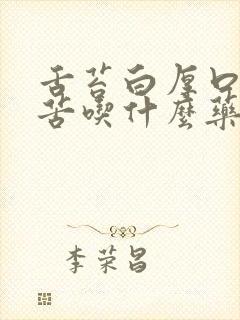 舌苔白厚口
苦喫什麼藥
李荣昌